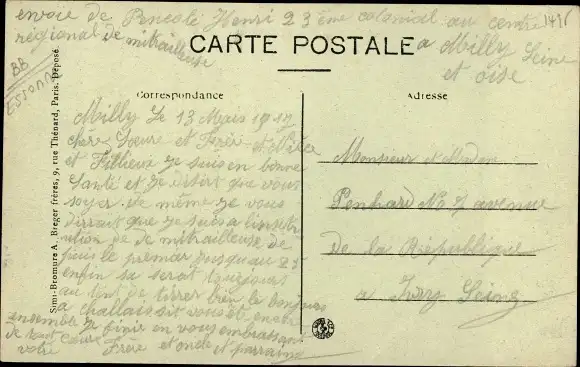 envoie de Pencolé Henri 23 ème colonial au centre
régional de mitrailleuse a Milly Seine
et oise
CARTE POSTALE
Correspondance
Adresse
BB
ESSONNE
Simi-Bromure A. Breger frères, 9, rue Thénard, Paris. Déposé.
Milly Le 13 Mars 1917
chère Soeure et Frère et Nièce
et Fillieux je suis en bonne
Santé et je désirt que vous
soyer de même je vous
dirrait que je suis a linstru
de mitrailleuse de
puis le premar jusquau 25
enfin sa serat toujours
au tent de tirrer bien le bonjours
a challais sit vous
ensemble je finie en vous embrassant
de tout cœur
votre Frère et oncle et parrain
Monsieur et Madam
Penhard No 7 avenue
de la Republique
a Ivry Seine